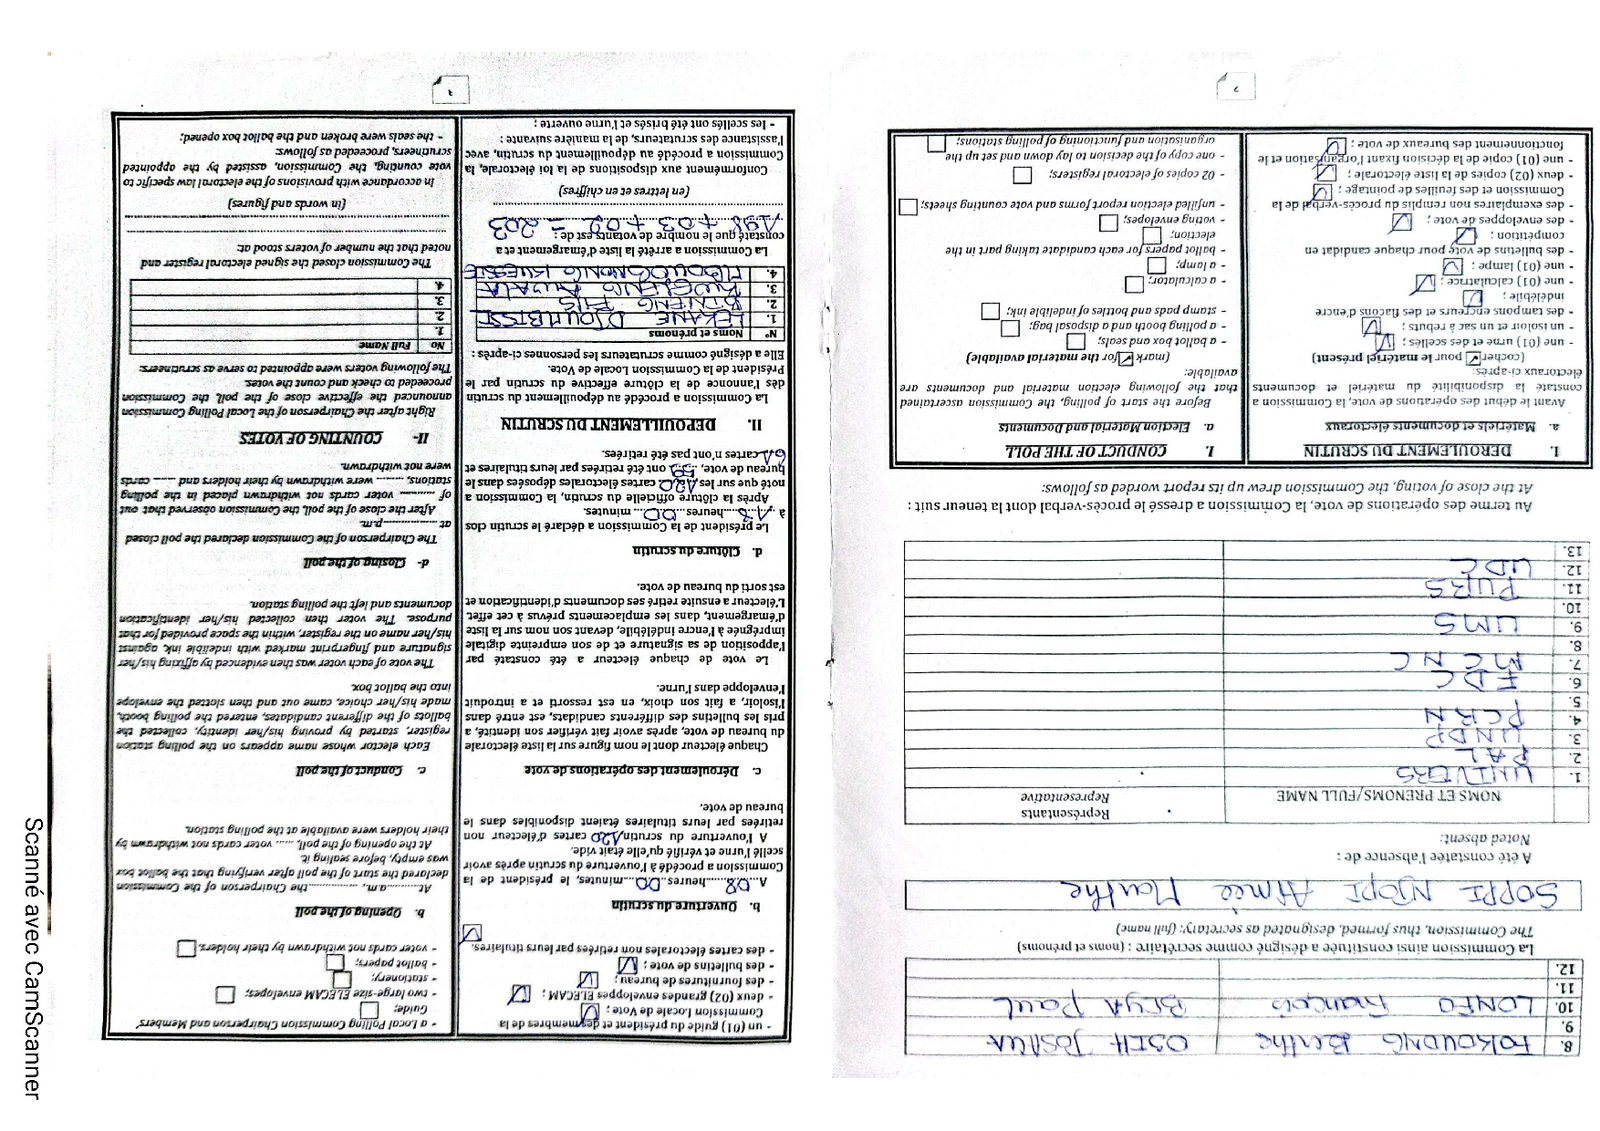 8. FOKOUONG Berthe OSIH JOSHUA
9.
10. LONFO François BRYA Paul
11.
12.
La Commission ainsi constituée a désigné comme secrétaire : (noms et prénoms)
The Commission, thus formed, designated as secretary: (full name)
SOPPI NJOPI Aimée Marthe
A été constatée l'absence de :
Noted absent:
NOMS ET PRENOMS/FULL NAME
Représentants
Representative
1. UNIVERS
2. PAL
3. UNDP
4. PCRN
5.
6. FDC
7. MCNC
8.
9. UMS
10.
11. PURS
12. UDC
13.
Au terme des opérations de vote, la Commission a dressé le procès-verbal dont la teneur suit :
At the close of voting, the Commission drew up its report worded as follows:
I. DEROULEMENT DU SCRUTIN
a. Matériels et documents électoraux
Avant le début des opérations de vote, la Commission a
constaté la disponibilité du matériel et documents
électoraux ci-après:
(cocher ✓ pour le matériel présent)
- une (01) urne et des scellés ;
- un isoloir et un sac à rebuts ;
- des tampons encreurs et des flacons d'encre
indélébile ;
- une (01) calculatrice ;
- une (01) lampe ;
- des bulletins de vote pour chaque candidat en
compétition ;
- des enveloppes de vote ;
- des exemplaires non remplis du procès-verbal de la
Commission et des feuilles de pointage ;
- deux (02) copies de la liste électorale ;
- une (01) copie de la décision fixant l'organisation et le
fonctionnement des bureaux de vote ;
I. CONDUCT OF THE POLL
a. Election Material and Documents
Before the start of polling, the Commission ascertained
that the following election material and documents are
available:
(mark ✓ for the material available)
- a ballot box and seals;
- a polling booth and a disposal bag;
- stamp pads and bottles of indelible ink;
- a calculator;
- a lamp;
- ballot papers for each candidate taking part in the
election;
- voting envelopes;
- unfilled election report forms and vote counting sheets;
- 02 copies of electoral registers;
- one copy of the decision to lay down and set up the
organisation and functioning of polling stations;
2
- un (01) guide du président et des membres de la
Commission Locale de Vote ;
- deux (02) grandes enveloppes ELECAM ;
- des fournitures de bureau ;
- des bulletins de vote ;
- des cartes électorales non retirées par leurs titulaires.
b. Ouverture du scrutin
A 08 heures 00 minutes, le président de la
Commission a procédé à l'ouverture du scrutin après avoir
scellé l'urne et vérifié qu'elle était vide.
A l'ouverture du scrutin, 120 cartes d'électeur non
retirées par leurs titulaires étaient disponibles dans le
bureau de vote.
c. Déroulement des opérations de vote
Chaque électeur dont le nom figure sur la liste électorale
du bureau de vote, après avoir fait vérifier son identité, a
pris les bulletins des différents candidats, est entré dans
l'isoloir, a fait son choix, en est ressorti et a introduit
l'enveloppe dans l'urne.
Le vote de chaque électeur a été constaté par
l'apposition de sa signature et de son empreinte digitale
imprégnée à l'encre indélébile, devant son nom sur la liste
d'émargement, dans les emplacements prévus à cet effet.
L'électeur a ensuite retiré ses documents d'identification et
est sorti du bureau de vote.
d. Clôture du scrutin
Le président de la Commission a déclaré le scrutin clos
à 18 heures 00 minutes.
Après la clôture officielle du scrutin, la Commission a
noté que sur les 120 cartes électorales déposées dans le
bureau de vote, 59 ont été retirées par leurs titulaires et
61 cartes n'ont pas été retirées.
II. DEPOUILLEMENT DU SCRUTIN
La Commission a procédé au dépouillement du scrutin
dès l'annonce de la clôture effective du scrutin par le
Président de la Commission Locale de Vote.
Elle a désigné comme scrutateurs les personnes ci-après :
N° Noms et prénoms
1. LEKANE DJOUMBISSI
2. BINIENG FILS
3.
4. KUESSIE
La Commission a arrêté la liste d'émargement et a
constaté que le nombre de votants est de :
198 + 03 + 02 = 203
(en lettres et en chiffres)
Conformément aux dispositions de la loi électorale, la
Commission a procédé au dépouillement du scrutin, avec
l'assistance des scrutateurs, de la manière suivante :
- les scellés ont été brisés et l'urne ouverte ;
- a Local Polling Commission Chairperson and Members'
Guide;
- two large-size ELECAM envelopes;
- stationery;
- ballot papers;
- voter cards not withdrawn by their holders.
b. Opening of the poll
At..........a.m., ..............the Chairperson of the Commission
declared the start of the poll after verifying that the ballot box
was empty, before sealing it.
At the opening of the poll, ...... voter cards not withdrawn by
their holders were available at the polling station.
c. Conduct of the poll
Each elector whose name appears on the polling station
register, started by proving his/her identity, collected the
ballots of the different candidates, entered the polling booth,
made his/her choice, came out and then slotted the envelope
into the ballot box.
The vote of each voter was then evidenced by affixing his/her
signature and fingerprint marked with indelible ink, against
his/her name on the register, within the space provided for that
purpose. The voter then collected his/her identification
documents and left the polling station.
d- Closing of the poll
The Chairperson of the Commission declared the poll closed
at ..................p.m.
After the close of the poll, the Commission observed that out
of .......... voter cards not withdrawn placed in the polling
stations, ........ were withdrawn by their holders and ....... cards
were not withdrawn.
II- COUNTING OF VOTES
Right after the Chairperson of the Local Polling Commission
announced the effective close of the poll, the Commission
proceeded to check and count the votes.
The following voters were appointed to serve as scrutineers:
No Full Name
1.
2.
3.
4.
The Commission closed the signed electoral register and
noted that the number of voters stood at:
(in words and figures)
In accordance with provisions of the electoral law specific to
vote counting, the Commission, assisted by the appointed
scrutineers, proceeded as follows:
- the seals were broken and the ballot box opened;
3
Scanné avec CamScanner